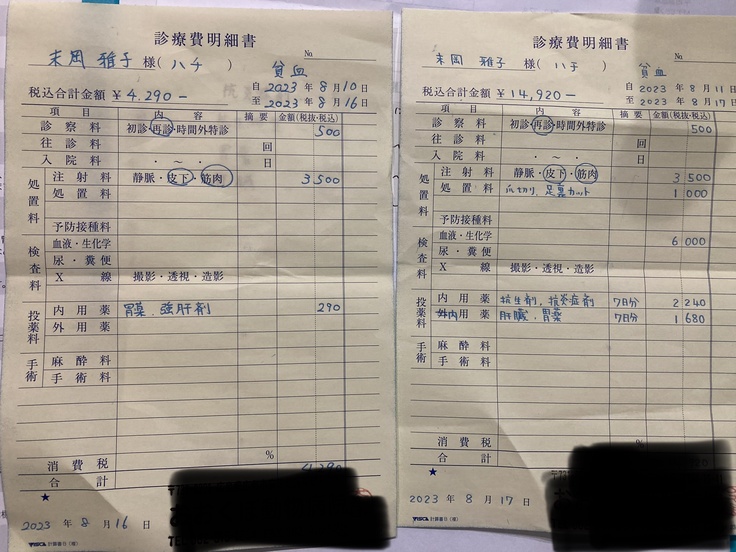 診療費明細書
No.
末岡 雅子 様(ハチ)
貧血
税込合計金額 ¥4.290-
自 2023 年 8 月 10 日
至 2023 年 8 月 16 日
項目 内容 摘要 金額(税抜・税込)
診察料 初診・再診・時間外特診 500
往診料 回
入院料 ・ ～ ・ 日
処置料 注射料 静脈・皮下・筋肉 3500
処置料
予防接種料
検査料 血液・生化学
尿・糞便
X線 撮影・透視・造影
投薬料 内用薬 胃薬、強肝剤 290
外用薬
手術 麻酔料
手術料
消費税 %
合計 4,290
★
2023 年 8 月 16 日
VISCA 計算書B(複)
診療費明細書
No.
末岡 雅子 様(ハチ)
貧血
税込合計金額 ¥14,920-
自 2023 年 8 月 11 日
至 2023 年 8 月 17 日
項目 内容 摘要 金額(税抜・税込)
診察料 初診・再診・時間外特診 500
往診料 回
入院料 ・ ～ ・ 日
処置料 注射料 静脈・皮下・筋肉 3500
処置料 爪切り、足裏カット 1000
予防接種料
検査料 血液・生化学 6000
尿・糞便
X線 撮影・透視・造影
投薬料 内用薬 抗生剤、抗炎症剤 7日分 2240
内用薬 肝臓、胃薬 7日分 1680
手術 麻酔料
手術料
消費税 %
合計
★
2023 年 8 月 17 日
VISCA 計算書B(複)